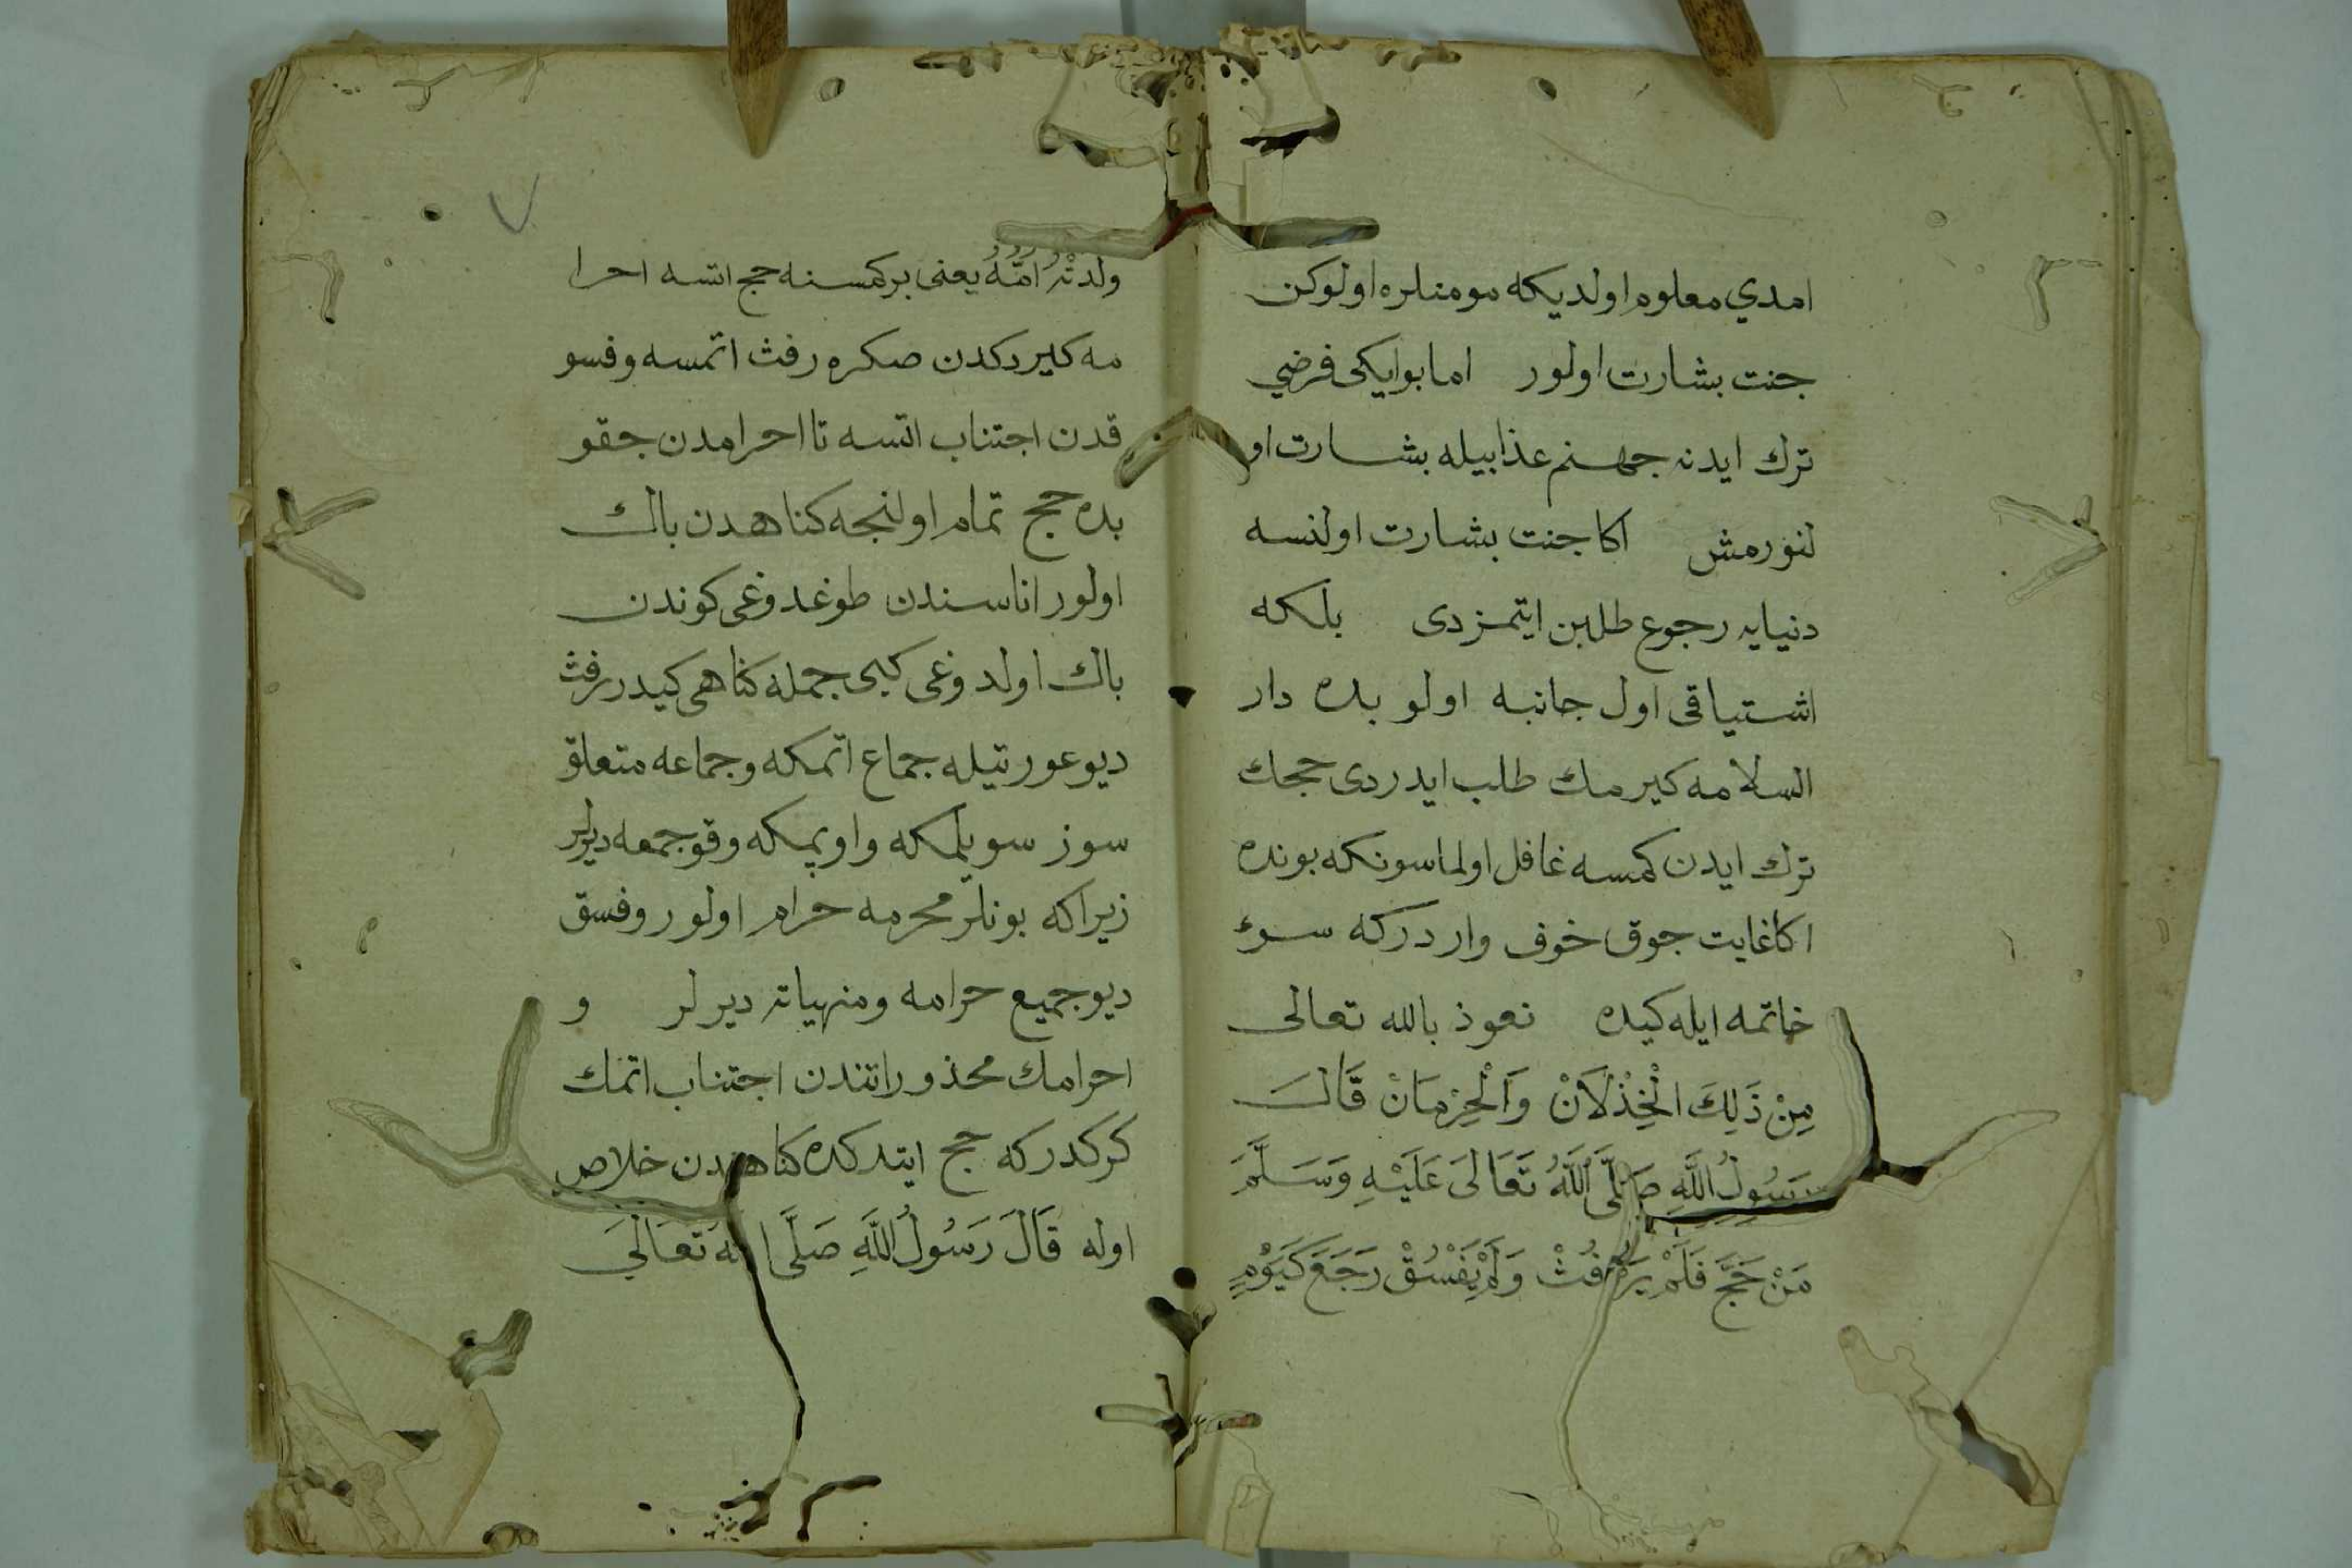 امدي معلوم اولديكه مومنلره اولوكن
جنت بشارت اولور اما بو ايكى فرضي
ترك ايدنه جهنم عذابيله بشارت او
لنورمش اكا جنت بشارت اولنسه
دنيايه رجوع طلبن ايتمزدى بلكه
اشتياقى اول جانبه اولو بده دار
السلامه كيرمك طلب ايدردى حجك
ترك ايدن كمسه غافل اولماسونكه بونده
اكا غايت جوق خوف واردركه سوء
خاتمه ايله كيده نعوذ بالله تعالى
مِنْ ذَلِكَ الْخِذْلَانْ وَالْحِرْمَانْ قَالَ
رَسُولُ اللَّهِ صَلَّى اللَّهُ تَعَالَى عَلَيْهِ وَسَلَّمَ
مَنْ حَجَّ فَلَمْ يَرْفُثْ وَلَمْ يَفْسُقْ رَجَعَ كَيَوْمٍ
ولدتْهُ اُمُّهُ يعنى بر كمسنه حج اتسه احرا
مه كيردكدن صكره رفث اتمسه وفسو
قدن اجتناب اتسه تا احرامدن جقو
بده حج تمام اولنجه كناهدن باك
اولور اناسندن طوغدوغى كوندن
باك اولدوغى كبى جمله كناهى كيدر رفث
ديو عورتيله جماع اتمكه وجماعه متعلق
سوز سويلمكه واوپمكه وقوجمعه ديرلر
زيراكه بونلر محرمه حرام اولور وفسق
ديو جميع حرامه ومنهياته ديرلر و
احرامك محذوراتندن اجتناب اتمك
كركدركه حج ايتدكده كناهندن خلاص
اوله قَالَ رَسُولُ اللَّهِ صَلَّى الله تَعَالَيَ